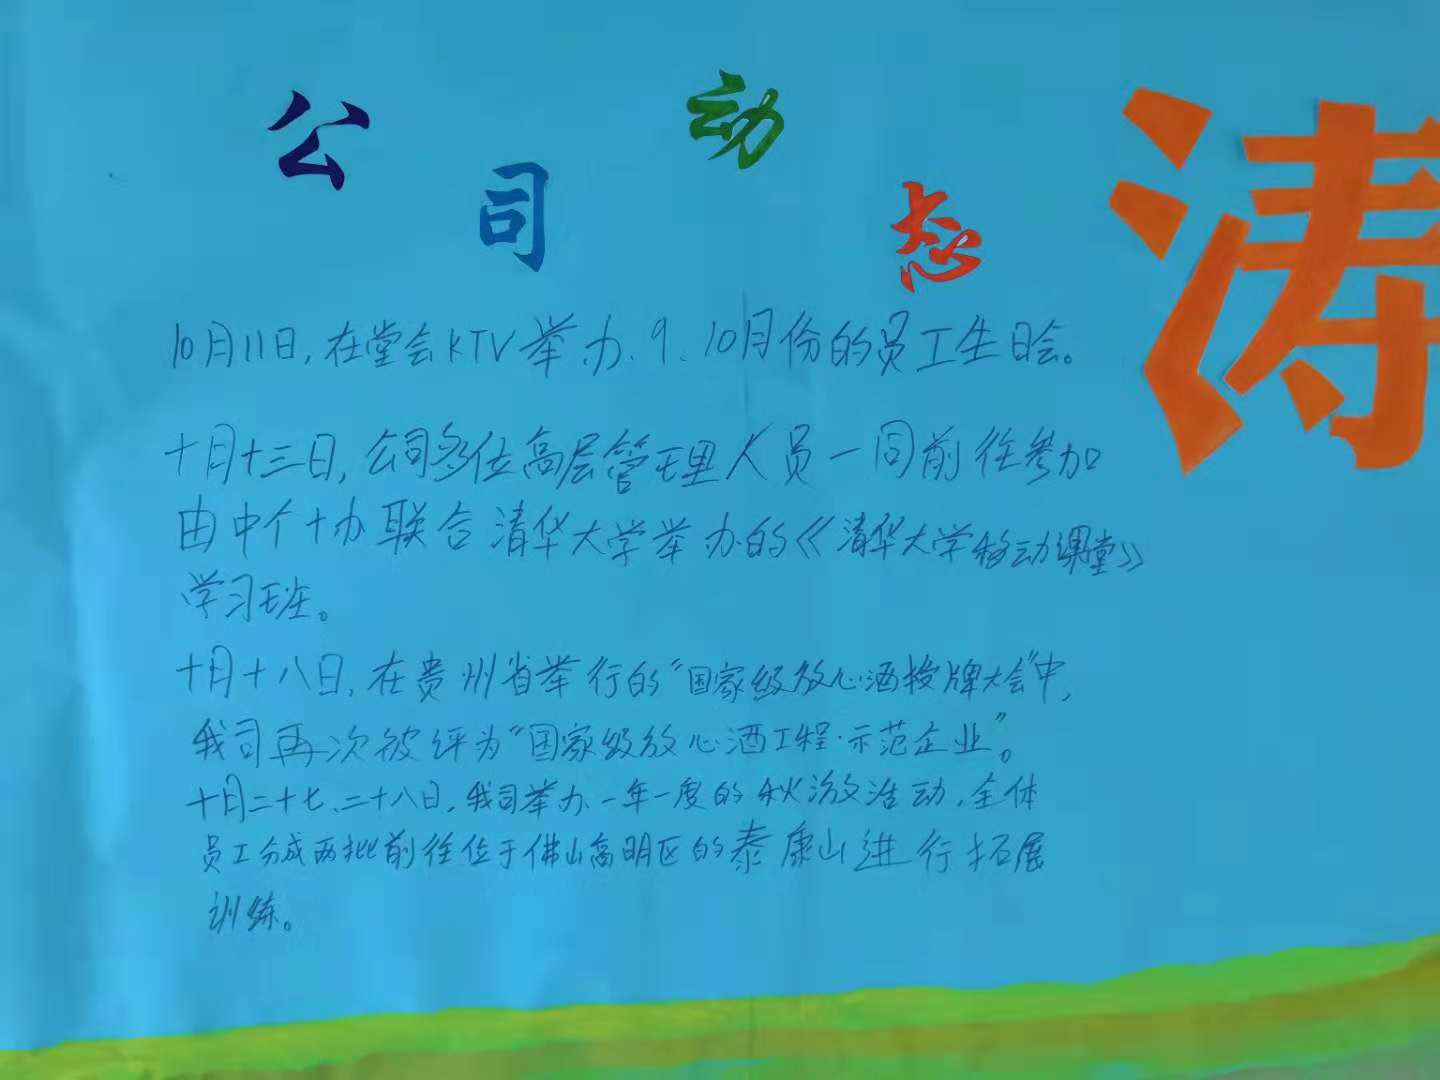 公司动态
涛
10月11日,在堂会KTV举办、9、10月份的员工生日会。
十月十三日,公司多位高层管理人员一同前往参加
由中个十办联合清华大学举办的《清华大学移动课堂》
学习班。
十月十八日,在贵州省举行的"国家级放心酒授牌大会"中,
我司再次被评为"国家级放心酒工程·示范企业"。
十月二十七、二十八日,我司举办一年一度的秋游活动,全体
员工分成两批前往位于佛山高明区的泰康山进行拓展
训练。